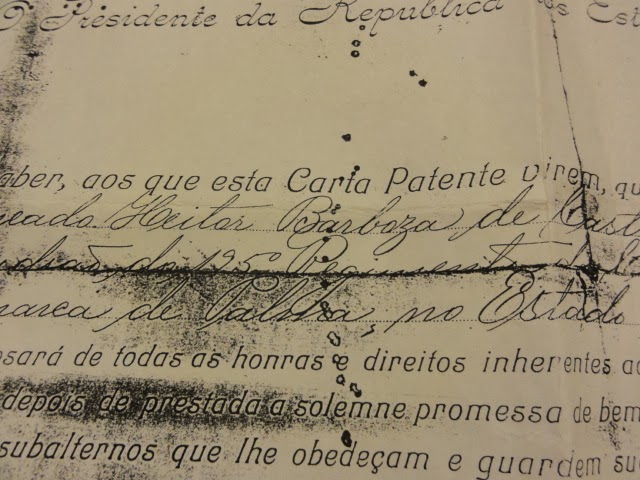 O Presidente da Republica dos Est
aber, aos que esta Carta Patente virem, qu
eado Heitor Barboza de Cast
do 125º Regimento
marca de Palma, no Estado
osará de todas as honras e direitos inherentes ao
depois de prestada a solemne promessa de bem
subalternos que lhe obedeçam e guardem sua